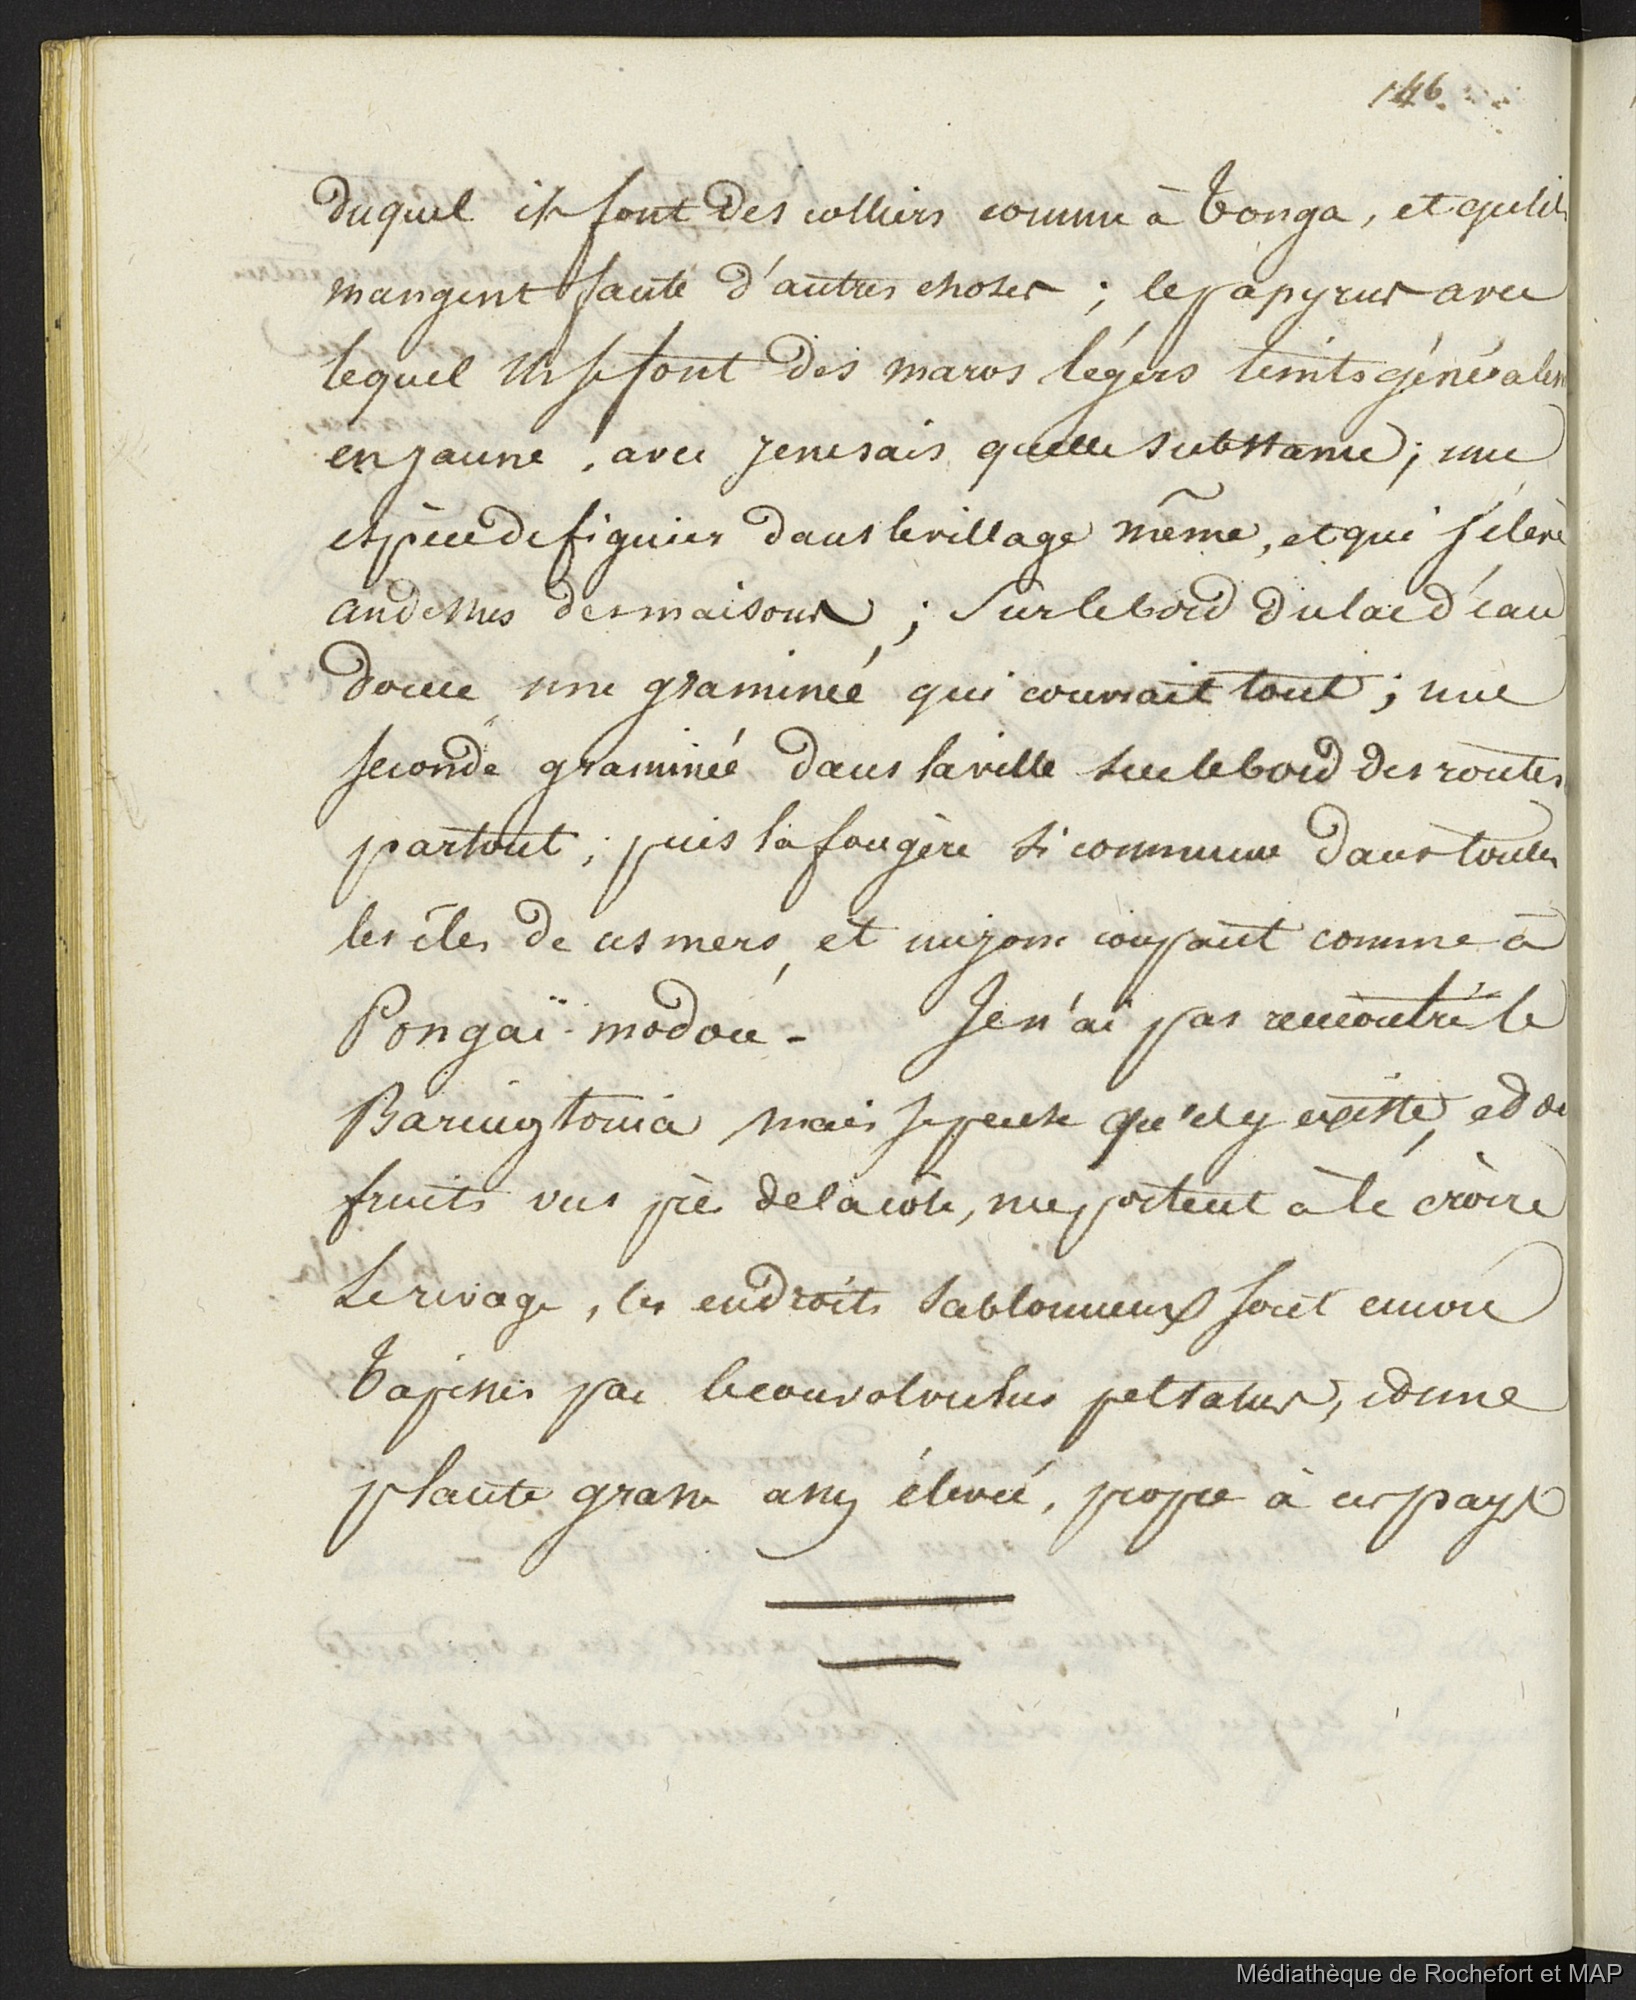 146.
duquel ils font des colliers comme à Tonga, et qu'ils
mangent faute d'autres choses ; le papyrus avec
lequel ils se font des maros légers teints généralem
en jaune, avec je ne sais quelle substance ; une
espèce de figuier dans le village même, et qui s'élève
au dessus des maisons ; sur le bord du lac d'eau
douce une graminée qui couvrait tout ; une
seconde graminée dans la ville sur le bord des routes
partout ; puis la fougère si commune dans toutes
les îles de ces mers, et un jonc coupant comme à
Pongaï-modou - Je n'ai pas rencontré le
Baringtonia mais je pense qu'il y existe, et de
fruits vus près de la côte, me portent à le croire
Le rivage, les endroits sablonneux sont encore
tapissés par le convolvulus peltatus, et une
plante grasse assez élevée, propre à ces pays
Médiathèque de Rochefort et MAP